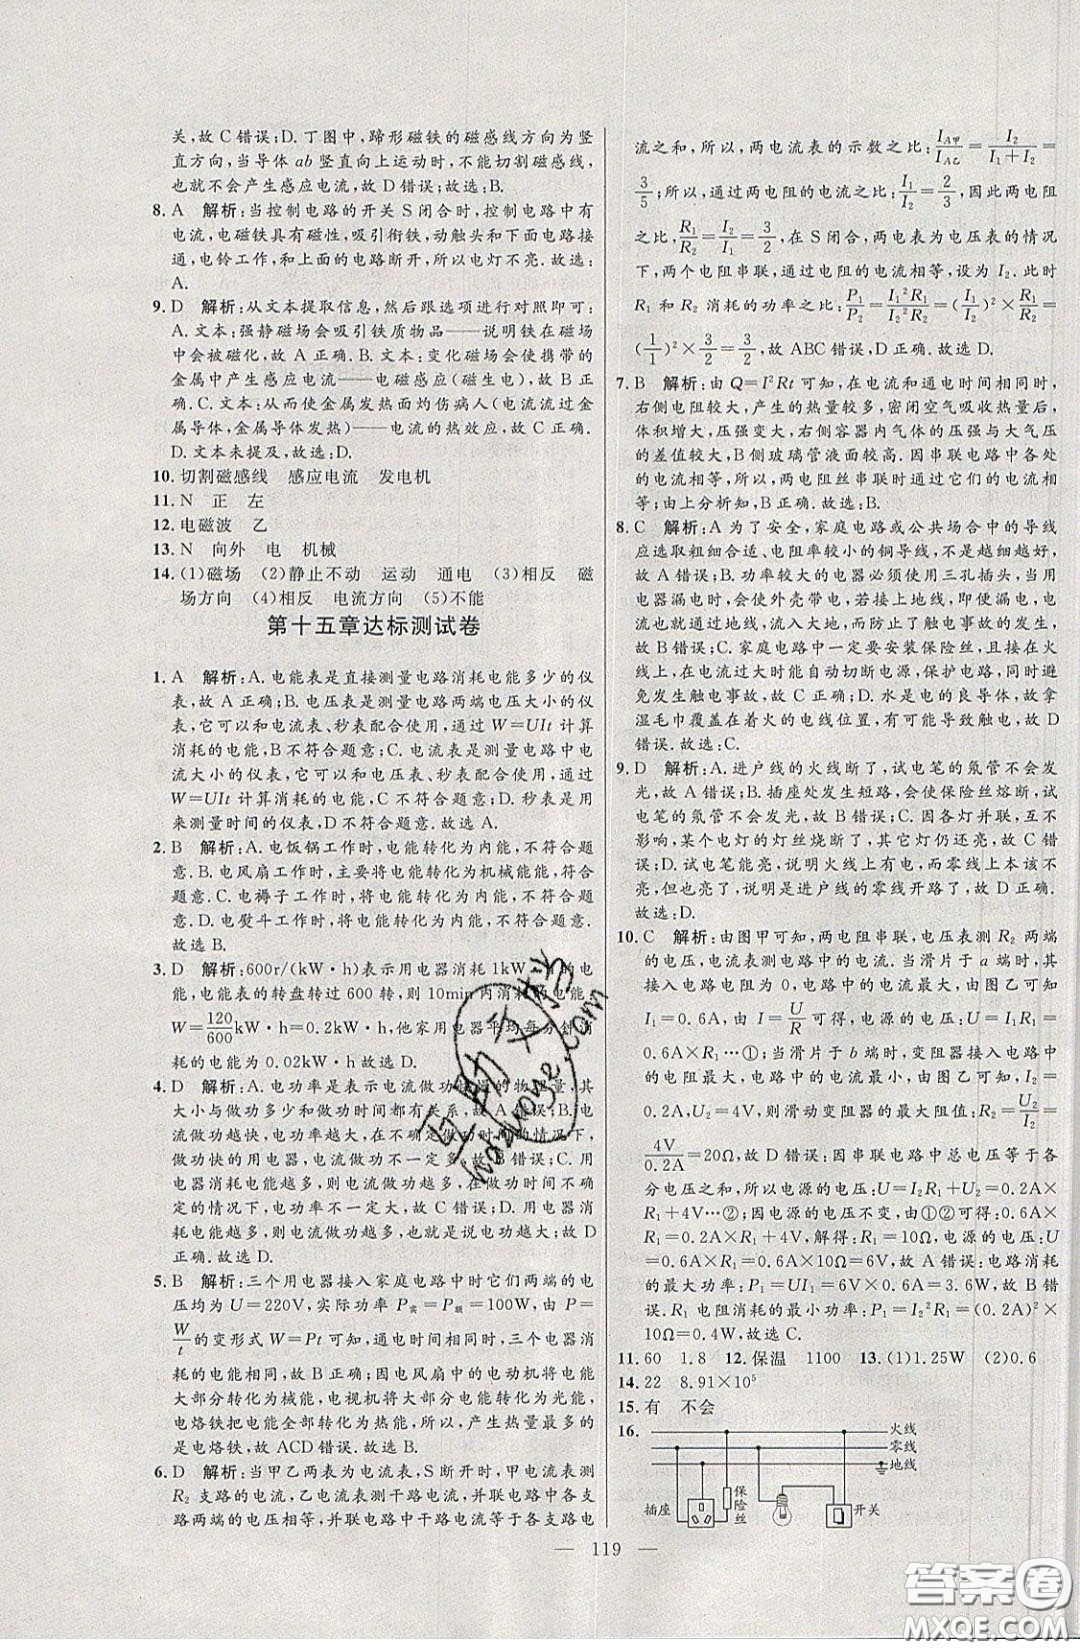 关,故C错误;D.丁图中,蹄形磁铁的磁感线方向为竖
直方向,当导体ab竖直向上运动时,不能切割磁感线,
也就不会产生感应电流,故D错误;故选:B.
8.A 解析:当控制电路的开关S闭合时,控制电路中有
电流,电磁铁具有磁性,吸引衔铁,动触头和下面电路接
通,电铃工作,和上面的电路断开,所以电灯不亮.故选:
A.
9.D 解析:从文本提取信息,然后跟选项进行对照即可:
A.文本:强静磁场会吸引铁质物品——说明铁在磁场
中会被磁化,故A正确.B.文本:变化磁场会使携带的
金属中产生感应电流——电磁感应(磁生电),故B正
确.C.文本:从而使金属发热而灼伤病人(电流流过金
属导体,金属导体发热)——电流的热效应,故C正确.
D.文本未提及,故选:D.
10.切割磁感线 感应电流 发电机
11.N 正 左
12.电磁波 乙
13.N 向外 电 机械
14.(1)磁场 (2)静止不动 运动 通电 (3)相反 磁
场方向 (4)相反 电流方向 (5)不能
第十五章达标测试卷
1.A 解析:A.电能表是直接测量电路消耗电能多少的仪
表,故选A正确;B.电压表是测量电路两端电压大小的仪
表,它可以和电流表、秒表配合使用,通过W=UIt计算
消耗的电能,B不符合题意;C.电流表是测量电路中电
流大小的仪表,它可以和电压表、秒表配合使用,通过
W=UIt计算消耗的电能,C不符合题意;D.秒表是用
来测量时间的仪表,D不符合题意.故选A.
2.B 解析:A.电饭锅工作时,电能转化为内能,不符合题
意.B.电风扇工作时,主要将电能转化为机械能能,符合
题意.C.电褥子工作时,将电能转化为内能,不符合题
意.D.电熨斗工作时,将电能转化为内能,不符合题意.
故选B.
3.D 解析:600r/(kW·h)表示用电器消耗1kW·h的电
能,电能表的转盘转过600转,则10min内消耗的电能,
W=120/600kW·h=0.2kW·h,他家用电器平均每分钟消
耗的电能为0.02kW·h故选D.
4.D 解析:A.电功率是表示电流做功快慢的物理量,其
大小与做功多少和做功时间都有关系,故A错误;B.电
流做功越快,电功率越大,在不明确做功时间的情况下,
做功快的用电器,电流做功不一定多.故B错误;C.用
电器消耗电能越多,则电流做功越多,做功时间不确
定的情况下,电功率不一定大,故C错误;D.用电器
消耗的电能越多,则电流做功越多,也就说电功越大;故D
正确.故选D.
5.B 解析:三个用电器接入家庭电路中时它们两端的电
压均为U=220V,实际功率P实=P额=100W,由P=
W/t的变形式W=Pt可知,通电时间相同时,三个电器消
耗的电能相同,故B正确;因电风扇中的电动机将电能
大部分转化为械能,电视机将大部分电能转化光能,
电烙铁把电能全部转化为热能,所以,产生热量最多的
是电烙铁,故ACD错误.故选B.
6.D 解析:当甲乙两表为电流表,S断开时,甲电流表测
R₂支路的电流,乙电流表测干路电流,并联电路中各支
路两端的电压相等,并联电路中干路电流等于各支路电
流之和,所以,两电流表的示数之比:I_A甲/I_A乙=I₂/(I₁+I₂)=
3/5;所以,通过两电阻的电流之比:I₁/I₂=2/3,因此两电阻
之比,R₁/R₂=I₂/I₁=3/2,在S闭合,两电表为电压表的情况
下,两个电阻串联,通过电阻的电流相等,设为I.此时
R₁和R₂消耗的功率之比:P₁/P₂=I₁²R₁/I₂²R₂=(I₁/I₂)²×R₁/R₂=
(1/1)²×3/2=3/2,故ABC错误,D正确.故选D.
7.B 解析:由Q=I²Rt可知,在电流和通电时间相同时,
右侧电阻较大,产生的热量较多,密闭空气吸收热量后,
体积增大,压强变大,右侧容器内气体的压强与大气压
的差值较大,B侧玻璃管液面较高.因串联电路中各处
的电流相等,两电阻丝串联时通过它们的电流相
等;由上分析知,B正确.故选:B.
8.C 解析:A为了安全,家庭电路或公共场合中的导线
应选取粗细合适、电阻率较小的铜导线,不是越细越好,
故A错误;B.功率较大的电器必须使用三孔插头,当用
电器漏电时,会使外壳带电,使用三孔插头,会使电流
通过地线,流入大地,从而防止了触电事故的发生,
故B错误;C.家庭电路中一定要安装保险丝,且接在火
线上,电流过大时能自动切断电源,保护电路,同时避
免发生触电事故,故C正确;D.水是电的良导体,故拿
湿毛巾覆盖在着火的电线位置,有可能导致触电,故D
错误.故选:C.
9.D 解析:A.进户线的火线断了,试电笔的氖管不会发
光,故A错误;B.插座处发生短路,会使保险丝熔断,试
电笔的氖管不会发光,故B错误;C.因各灯并联,互不
影响,某个电灯的灯丝烧断了,其它灯仍还亮,故C错
误;D.试电笔能亮,说明火线上有电,而零线上本来不
亮,但也亮了,说明是进户线的零线开路了,故D正确.
故选:D.
10.C 解析:由图甲可知,两电阻串联,电压表测R₂两端
的电压,电流表测电路中的电流.当滑片于a端时,其
接入电路电阻为0,电路中的电流最大,由图乙可知
I₁=0.6A,由I=U/R可得,电源的电压:U=I₁R₁=
0.6A×R₁…①;当滑片于b端时,变阻器接入电路中
的电阻最大,电路中的电流最小,由图乙可知,I₂=
0.2A,U₂=4V,则滑动变阻器的最大阻值:R₂=U₂/I₂=
4V/0.2A=20Ω,故D错误;因串联电路中总电压等于各
分电压之和,所以电源的电压:U=I₂R₁+U₂=0.2A×
R₁+4V…②;因电源的电压不变,由①②可得:0.6A×
R₁=0.2A×R₁+4V,解得:R₁=10Ω,电源的电压:U
=0.6A×R₁=0.6A×10Ω=6V,故A错误;电路消耗
的最大功率:P₁=UI₁=6V×0.6A=3.6W,故B错
误.R₁电阻消耗的最小功率:P₁=I₂²R₁=(0.2A)²×
10Ω=0.4W,故选C.
11.60 1.8 12.保温 1100 13.(1)1.25W (2)0.6
14.22 8.91×10⁵
15.有 不会
16.
火线
零线
地线
插座
保险丝
开关
119
答案圈
MXQE.COM